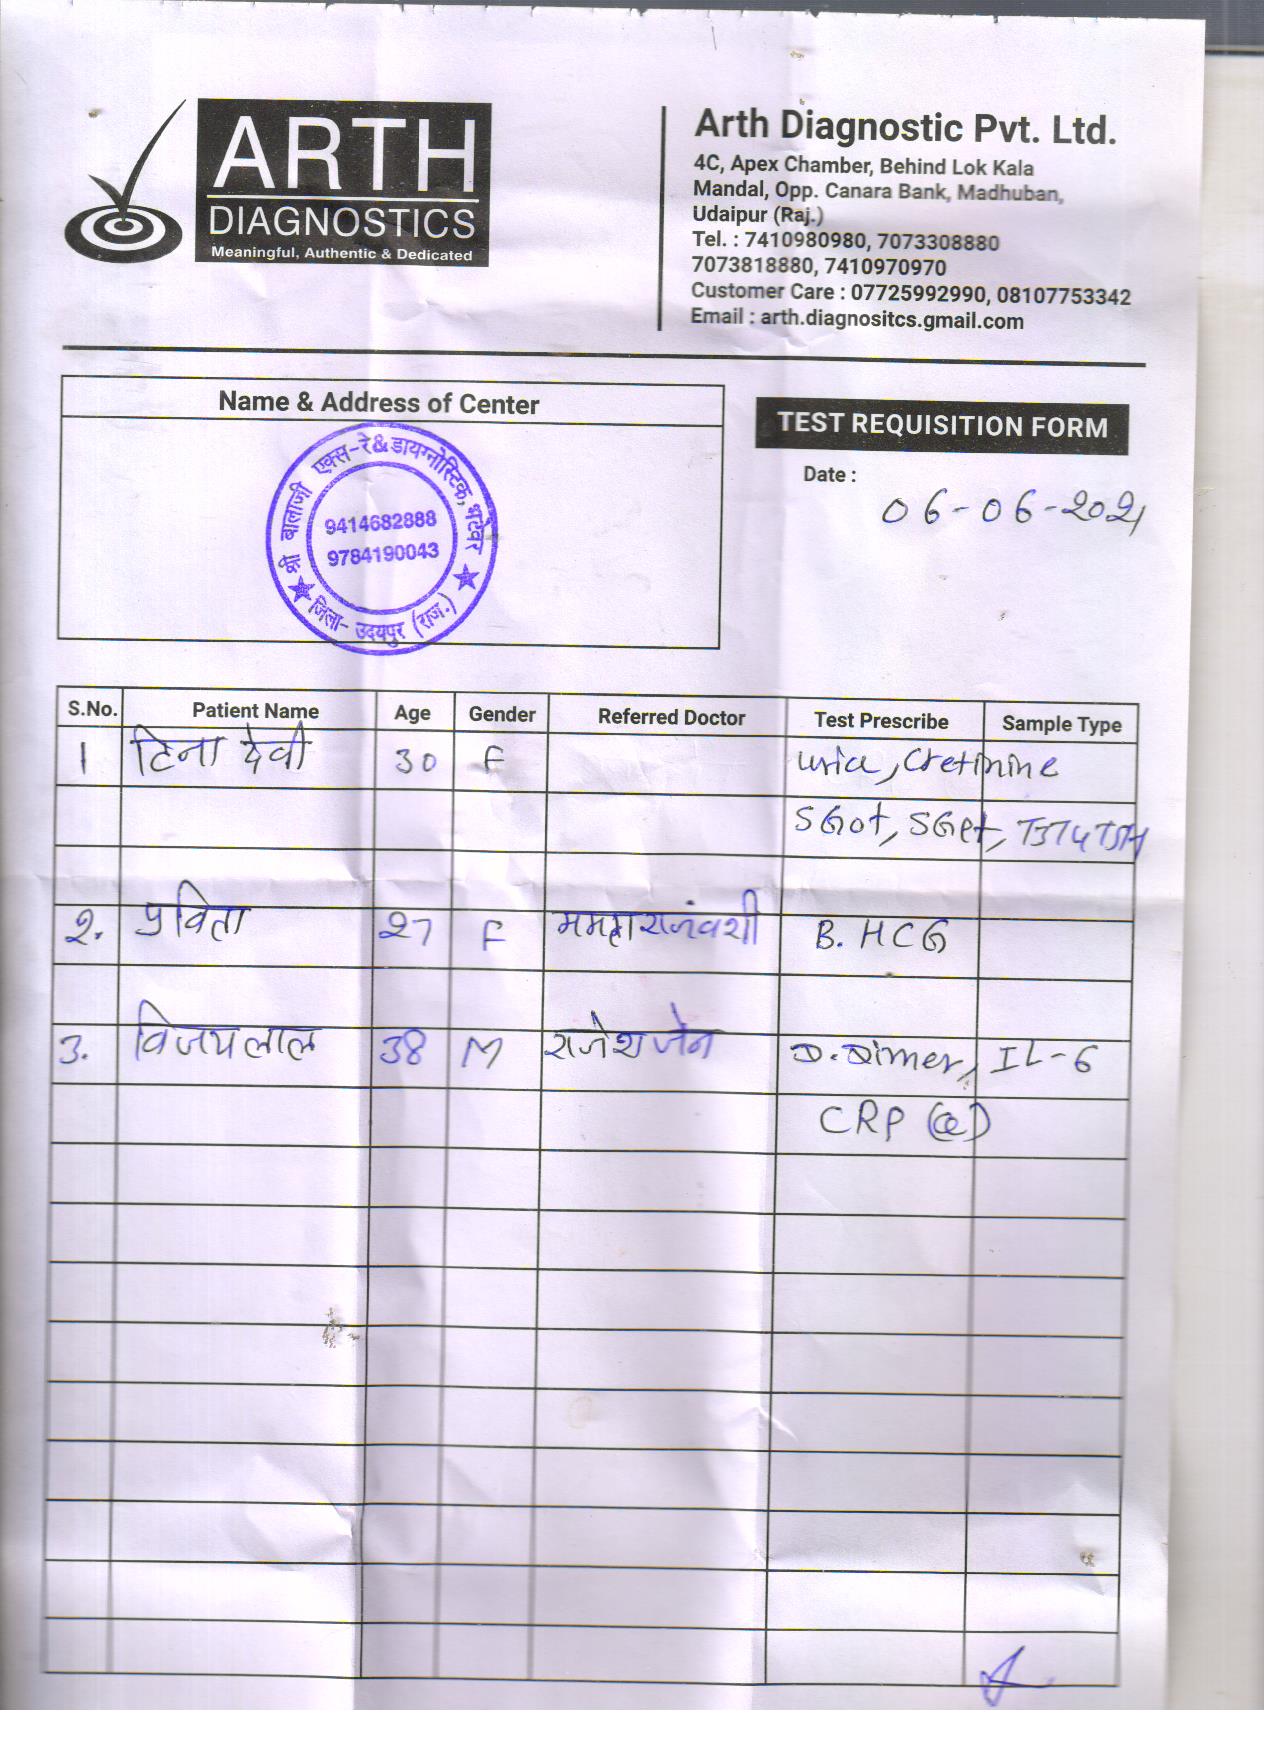 ARTH
DIAGNOSTICS
Meaningful, Authentic & Dedicated
Arth Diagnostic Pvt. Ltd.
4C, Apex Chamber, Behind Lok Kala
Mandal, Opp. Canara Bank, Madhuban,
Udaipur (Raj.)
Tel. : 7410980980, 7073308880
7073818880, 7410970970
Customer Care : 07725992990, 08107753342
Email : arth.diagnositcs.gmail.com
Name & Address of Center
श्री बालाजी एक्स-रे & डायग्नोस्टिक, भटेवर
9414682888
9784190043
जिला- उदयपुर (राज.)
TEST REQUISITION FORM
Date :
06-06-2021
S.No. Patient Name Age Gender Referred Doctor Test Prescribe Sample Type
1 टिना देवी 30 F Uria, Cretinine
SGot, SGpt, T3T4TSH
2. प्रविता 27 F B. HCG
3. विजयलाल 38 M राजेश जेन D.Dimer, IL-6
CRP (Q)